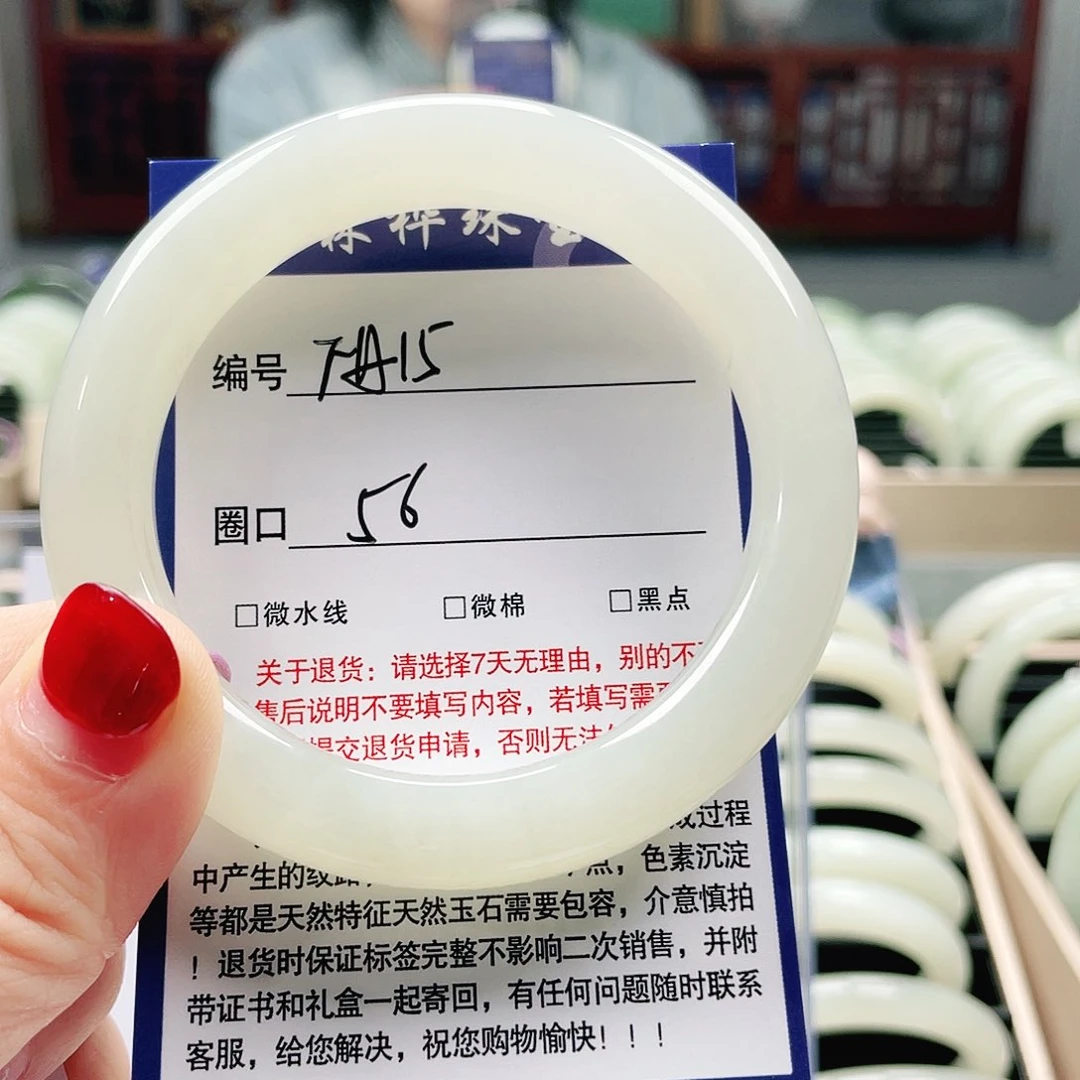 桦珠宝
编号 7月A15
圈口 56
□微水线 □微棉 □黑点
关于退货：请选择7天无理由，别的不
售后说明不要填写内容，若填写需
提交退货申请，否则无法
成过程
中产生的纹路，点，色素沉淀
等都是天然特征天然玉石需要包容，介意慎拍
！退货时保证标签完整不影响二次销售，并附
带证书和礼盒一起寄回，有任何问题随时联系
客服，给您解决，祝您购物愉快！！！